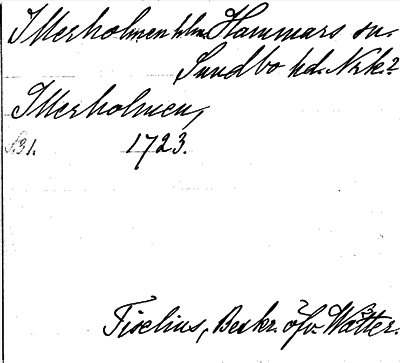 Illerholmen hlm Hammars sn.
Sundbo hd. Nrk.?
Illerholmen,
S.31. 1723.
Tiselius, Beskr. öfv. Wätter.